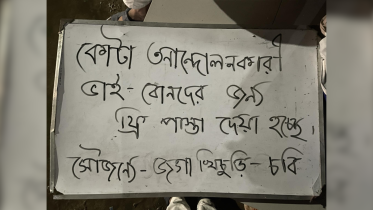 কোটা আন্দোলনকারী
ভাই-বোনদের জন্য
ফ্রি পাস্তা দেয়া হচ্ছে।
সৌজন্যে-জগা খিচুড়ি-চবি